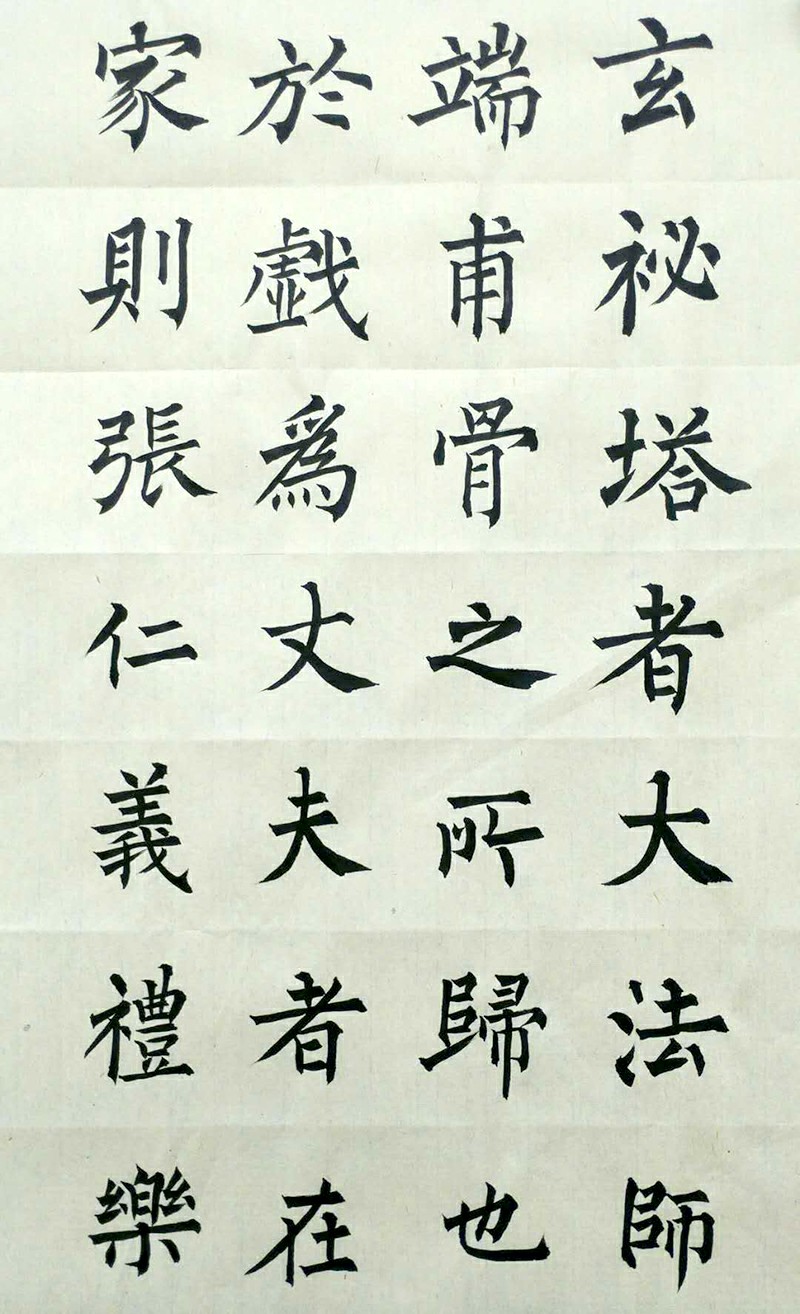 玄祕塔者大法師
端甫骨之所歸也
於戲爲丈夫者在
家則張仁義禮樂